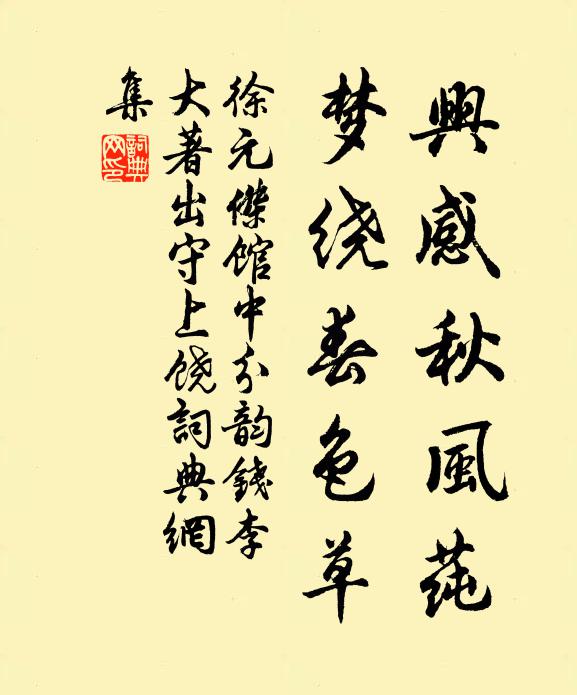 興感秋風莼
梦绕春色草
徐元傑館中分韵錢李
大著出守上饶詞典網
集
詞典
网印